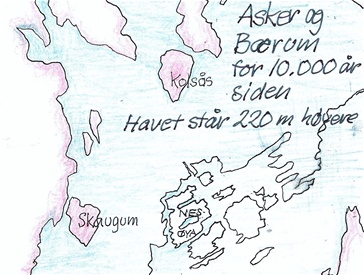 Asker og
Bærum
for 10.000 år
siden
Havet står 220 m høyere
Kolsås
Skaugum
NES-
ØYA